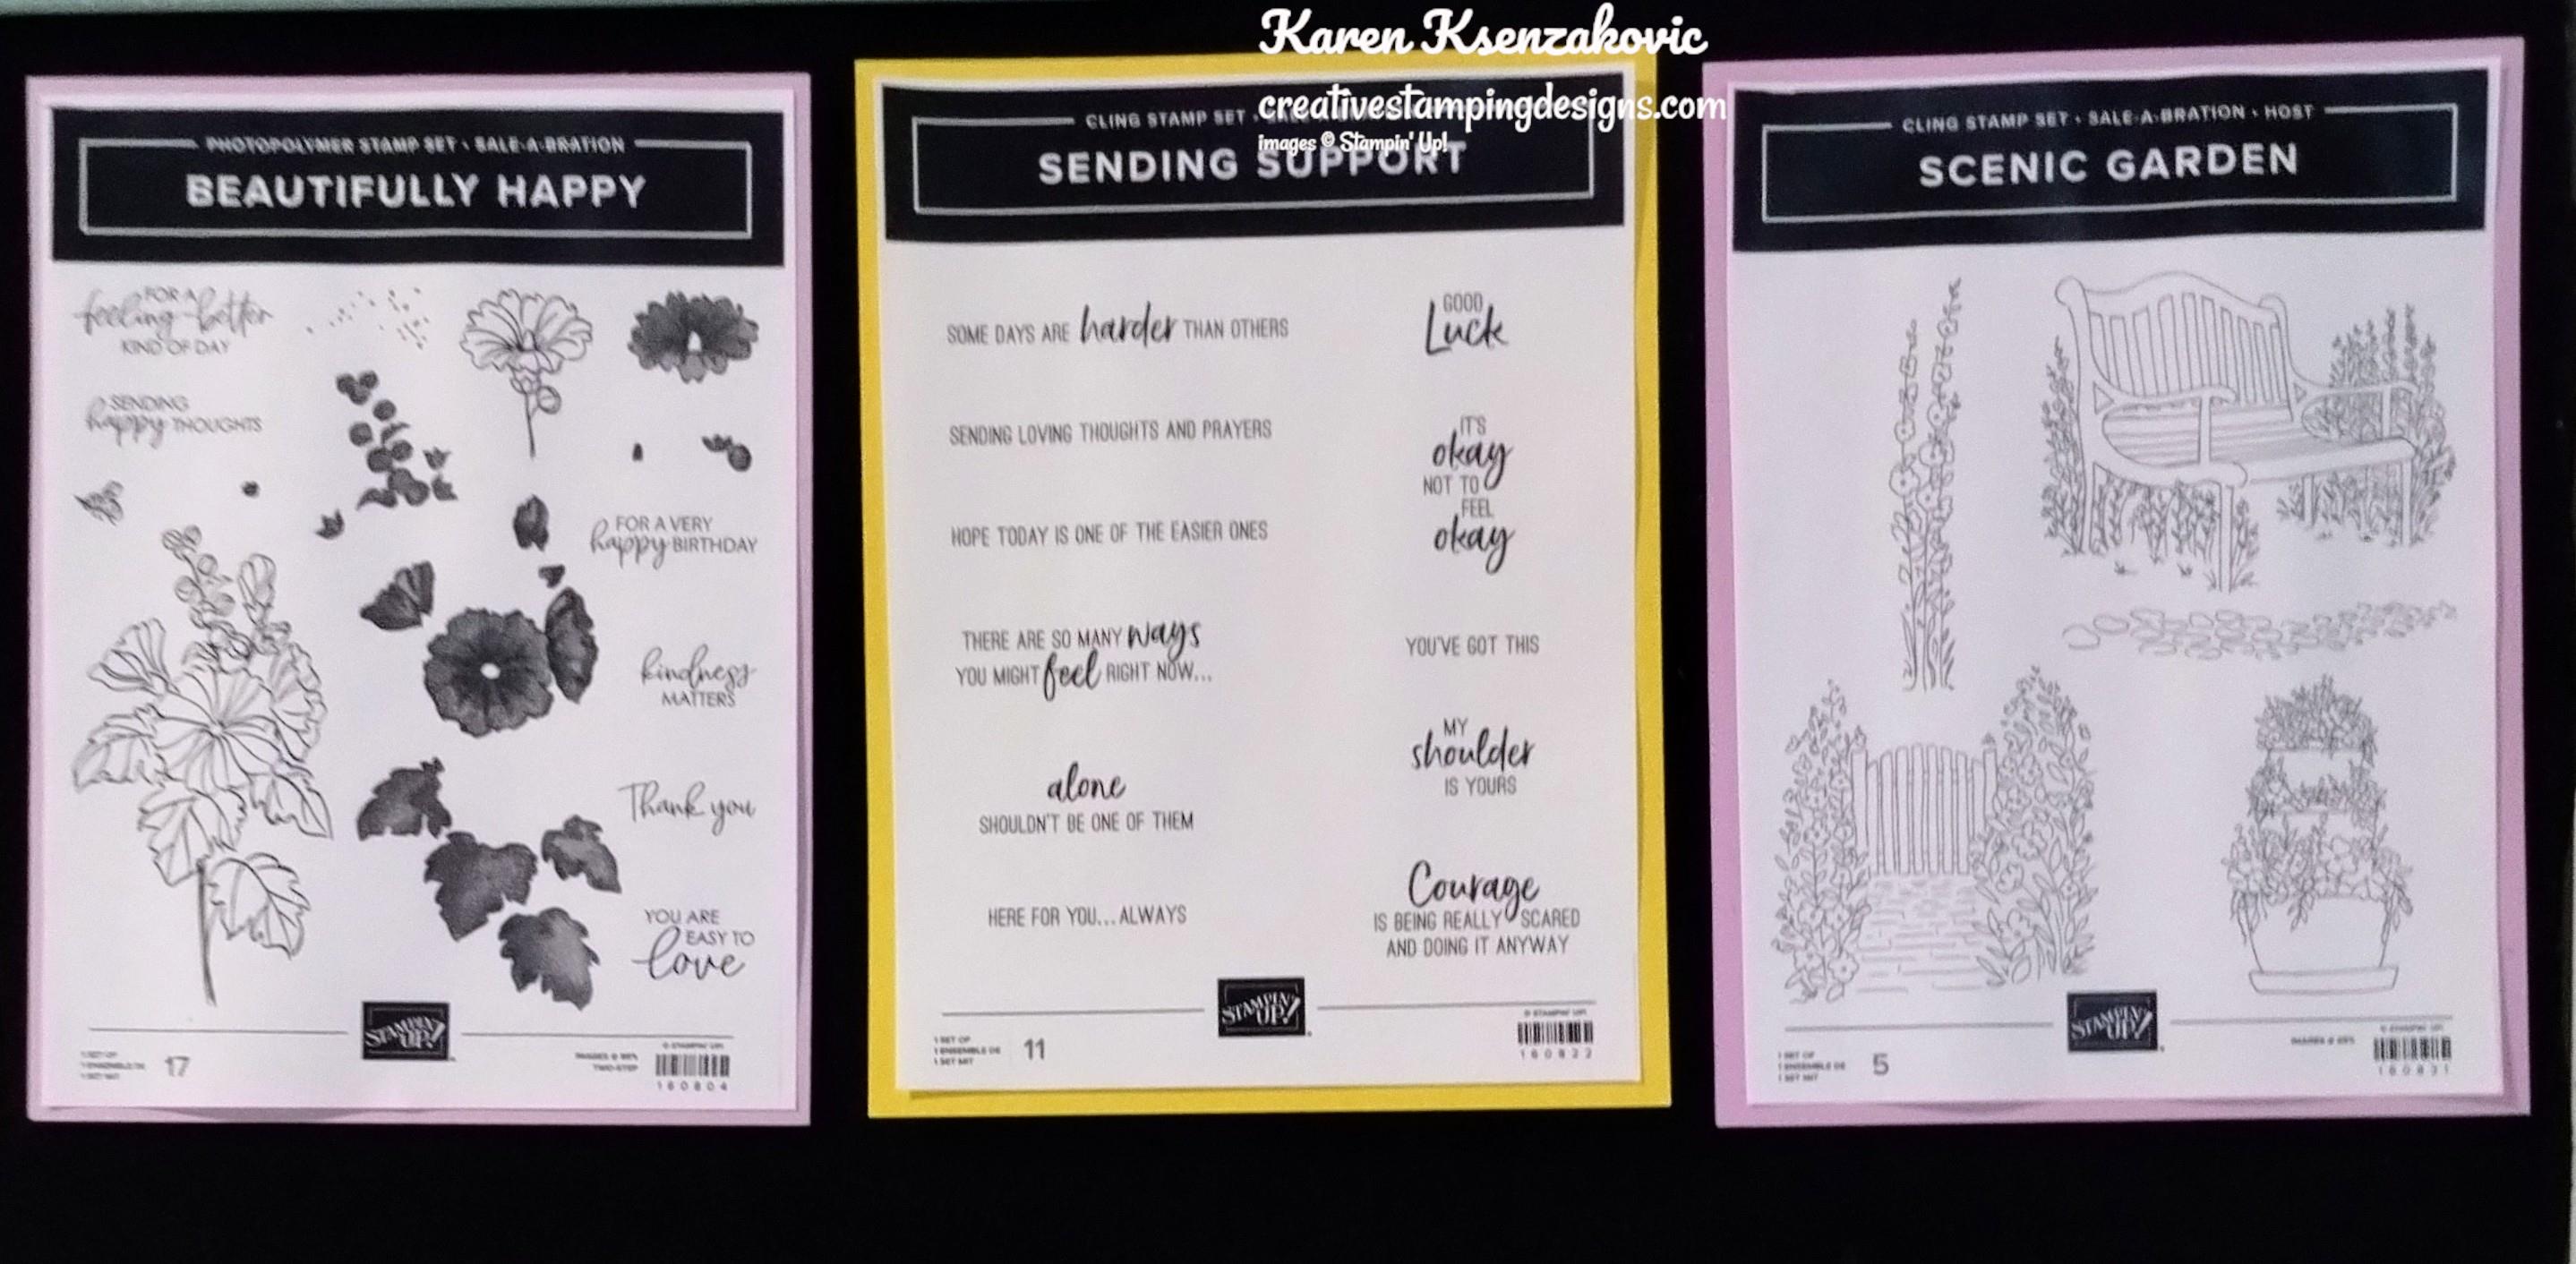 Karen Ksenzakovic
creativestampingdesigns.com
images © Stampin' Up!
PHOTOPOLYMER STAMP SET • SALE-A-BRATION
BEAUTIFULLY HAPPY
FOR A
feeling-better
KIND OF DAY
SENDING
happy THOUGHTS
FOR A VERY
happy BIRTHDAY
kindness
MATTERS
Thank you
YOU ARE
EASY TO
love
STAMPIN' UP!
1 SET OF
1 ENSEMBLE DE
1 SET MIT
17
IMAGES @ 
TWO-STEP
© STAMPIN' UP!
160804
CLING STAMP SET •
SENDING SUPPORT
SOME DAYS ARE harder THAN OTHERS
SENDING LOVING THOUGHTS AND PRAYERS
HOPE TODAY IS ONE OF THE EASIER ONES
THERE ARE SO MANY ways
YOU MIGHT feel RIGHT NOW...
alone
SHOULDN'T BE ONE OF THEM
HERE FOR YOU...ALWAYS
GOOD
Luck
IT'S
okay
NOT TO
FEEL
okay
YOU'VE GOT THIS
MY
shoulder
IS YOURS
Courage
IS BEING REALLY SCARED
AND DOING IT ANYWAY
STAMPIN' UP!
1 SET OF
1 ENSEMBLE DE
1 SET MIT
11
© STAMPIN' UP!
160822
CLING STAMP SET • SALE-A-BRATION • HOST
SCENIC GARDEN
STAMPIN' UP!
1 SET OF
1 ENSEMBLE DE
1 SET MIT
5
IMAGES @
© STAMPIN' UP!
160831